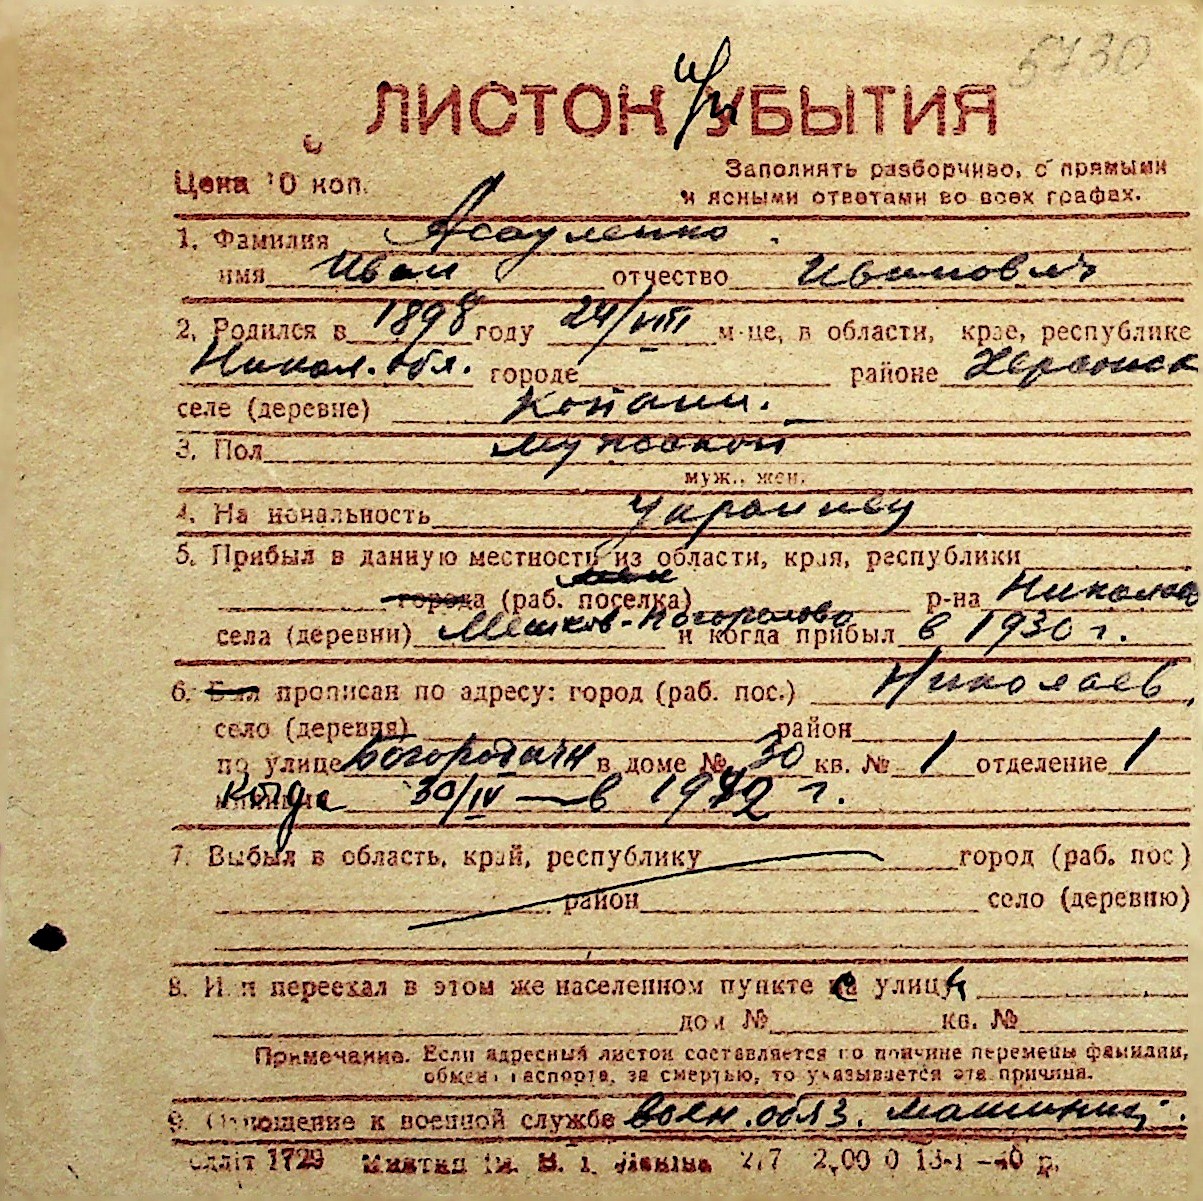 5730
ЛИСТОК УБЫТИЯ
Цена 10 коп.
Заполнять разборчиво, с прямыми
и ясными ответами во всех графах.
1. Фамилия Асауленко.
имя Иван отчество Иванович
2. Родился в 1898 году 24/VIII м-це, в области, крае, республике
Никол. обл. городе районе Херсонск
селе (деревне) Копани.
3. Пол мужской
муж., жен.
4. Национальность украинец
5. Прибыл в данную местность из области, края, республики
города (раб. поселка) р-на Николаев
села (деревни) Мешков-Погорелово и когда прибыл в 1930 г.
6. Был прописан по адресу: город (раб. пос.) Николаев
село (деревня) район
по улице в доме № 30 кв. № 1 отделение 1
Когда 30/IV — в 1942 г.
7. Выбыл в область, край, республику город (раб. пос)
район село (деревню)
8. Или переехал в этом же населенном пункте с улицы
дом № кв. №
Примечание. Если адресный листок составляется по причине перемены фамилии,
обмена паспорта, за смертью, то указывается эта причина.
9. Отношение к военной службе воен. обяз. машинист.
1729 ім. В. І. Леніна